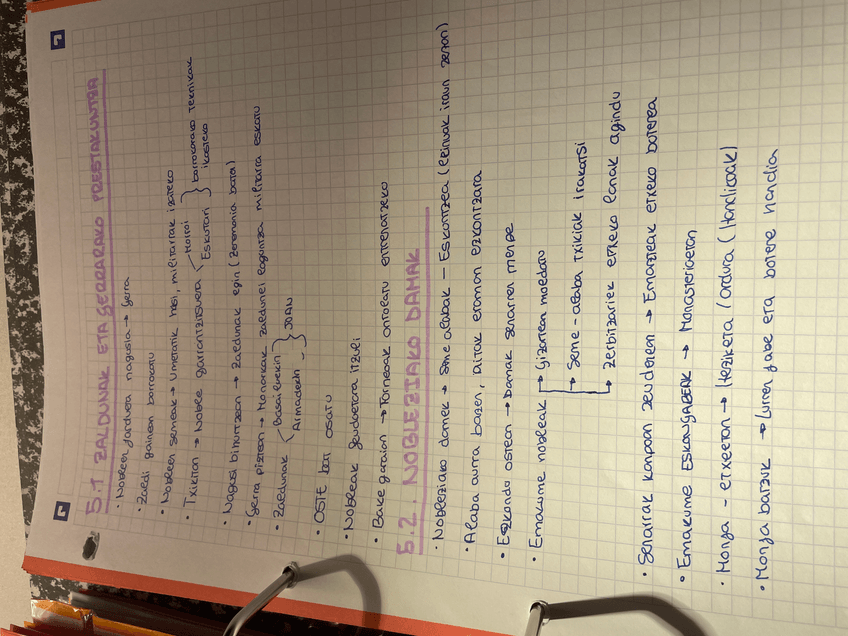 5.1 ZALDUNAK ETA GERRARAKO PRESTAKUNTZA
· Nobleen jarduera nagusia → Gerra
· Zaldi gainean borrokatu
· Nobleen semeak → Umetatik hasi, militarrak izateko
· Txikitan → Noble garrantzitsuera Morroi Eskutari } borrokarako teknikak ikasteko
· Nagusi bihurtzean → Zaldunak egin (Zeremonia bata)
· Gerra piztean → Monarkak zaldunei laguntza militarra eskatu
· Zaldunak Basailuekin Armadekin } JOAN
· OSTE bat osatu
· Nobleak gaudetara itzuli
· Bake garaian → Torneoak antolatu entrenatzeko
5.2. NOBLEZIAKO DAMAK
· Nobleziako damek → Seme alabak – Eskontzea (leinuak iraun zezan)
· Alaba aurra bazen, Ditak eraman ezkontzara
· Ezkondu ostean → Damak senarren menpe
· Emakume nobleak → Gizarren moedatu
→ Seme-alaba txikiak irakatsi
→ Zerbitzariek etxeko lanak agindu
· Senarrak kanpoan zeudenean → Emazteak etxeko boterea
· Emakume ESKONGABEAK → Monasterioetan
· Monja-etxeetan → Heziketa (ordura) (Handikoak)
· Monja batzuk → Lurren jabe eta botere handia